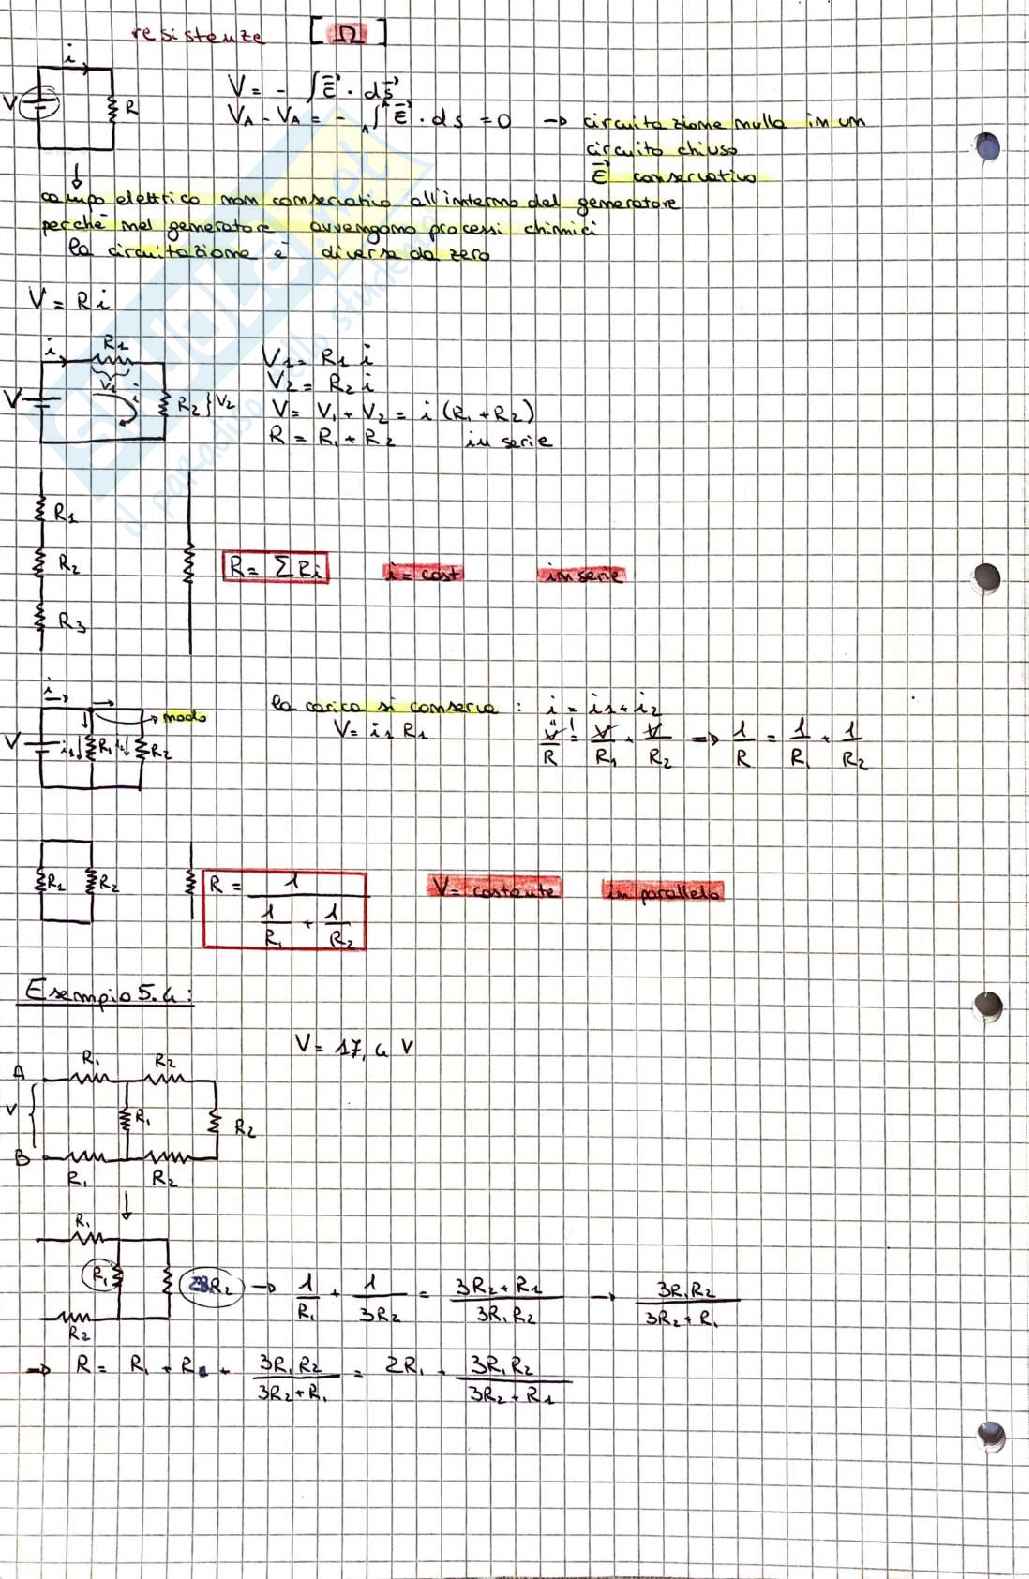 resistenze [Ω]
i
V R
V = - ∫E⃗ · ds⃗
VA - VA = - A∫A E⃗ · ds = 0 → circuitazione nulla in un
circuito chiuso
E⃗ conservativo
campo elettrico non conservativo all'interno del generatore
perchè nel generatore avvengono processi chimici
la circuitazione è diversa da zero
V = Ri
i R1
V1 i
V R2 } V2
V1 = R1 i
V2 = R2 i
V = V1 + V2 = i (R1 + R2)
R = R1 + R2 in serie
R1
R2
R3
R = Σ Ri i = cost in serie
i
nodo
V i1 R1 i2 R2
la carica si conserva : i = i1 + i2
V = i1 R1
V/R = V/R1 + V/R2 → 1/R = 1/R1 + 1/R2
R1 R2
R = 1/(1/R1 + 1/R2) V = costante in parallelo
Esempio 5.4:
V = 17,4 V
R1 R2
A
V R1 R2
B
R1 R2
↓
R1
R1 3R2 → 1/R1 + 1/3R2 = (3R2 + R1)/(3R1R2) → (3R1R2)/(3R2 + R1)
R2
⇒ R = R1 + R1 + (3R1R2)/(3R2 + R1) = 2R1 + (3R1R2)/(3R2 + R1)